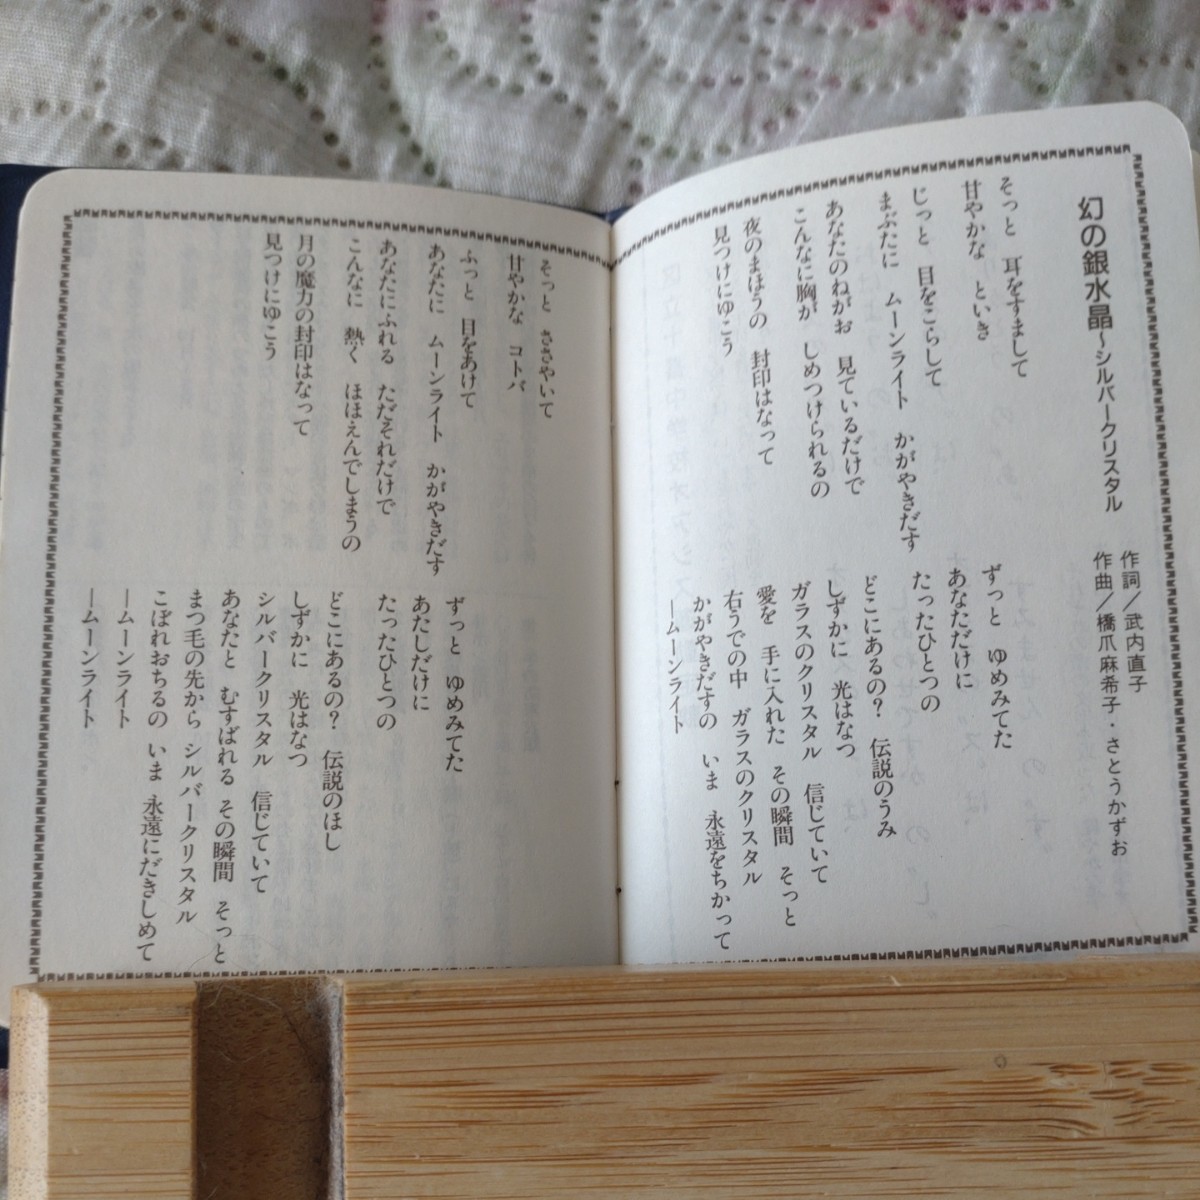 幻の銀水晶～シルバークリスタル
作詞／武内直子
作曲／橋爪麻希子・さとうかずお
そっと　耳をすまして
甘やかな　といき
じっと　目をこらして
まぶたに　ムーンライト　かがやきだす
あなたのねがお　見ているだけで
こんなに胸が　しめつけられるの
夜のまほうの　封印はなって
見つけにゆこう
ずっと　ゆめみてた
あなただけに
たったひとつの
どこにあるの？　伝説のうみ
しずかに　光はなつ
ガラスのクリスタル　信じていて
愛を　手に入れた　その瞬間　そっと
右うでの中　ガラスのクリスタル
かがやきだすの　いま　永遠をちかって
―ムーンライト
そっと　ささやいて
甘やかな　コトバ
ふっと　目をあけて
あなたに　ムーンライト　かがやきだす
あなたにふれる　ただそれだけで
こんなに　熱く　ほほえんでしまうの
月の魔力の封印はなって
見つけにゆこう
ずっと　ゆめみてた
あたしだけに
たったひとつの
どこにあるの？　伝説のほし
しずかに　光はなつ
シルバークリスタル　信じていて
あなたと　むすばれる　その瞬間　そっと
まつ毛の先から　シルバークリスタル
こぼれおちるの　いま　永遠にだきしめて
―ムーンライト
―ムーンライト